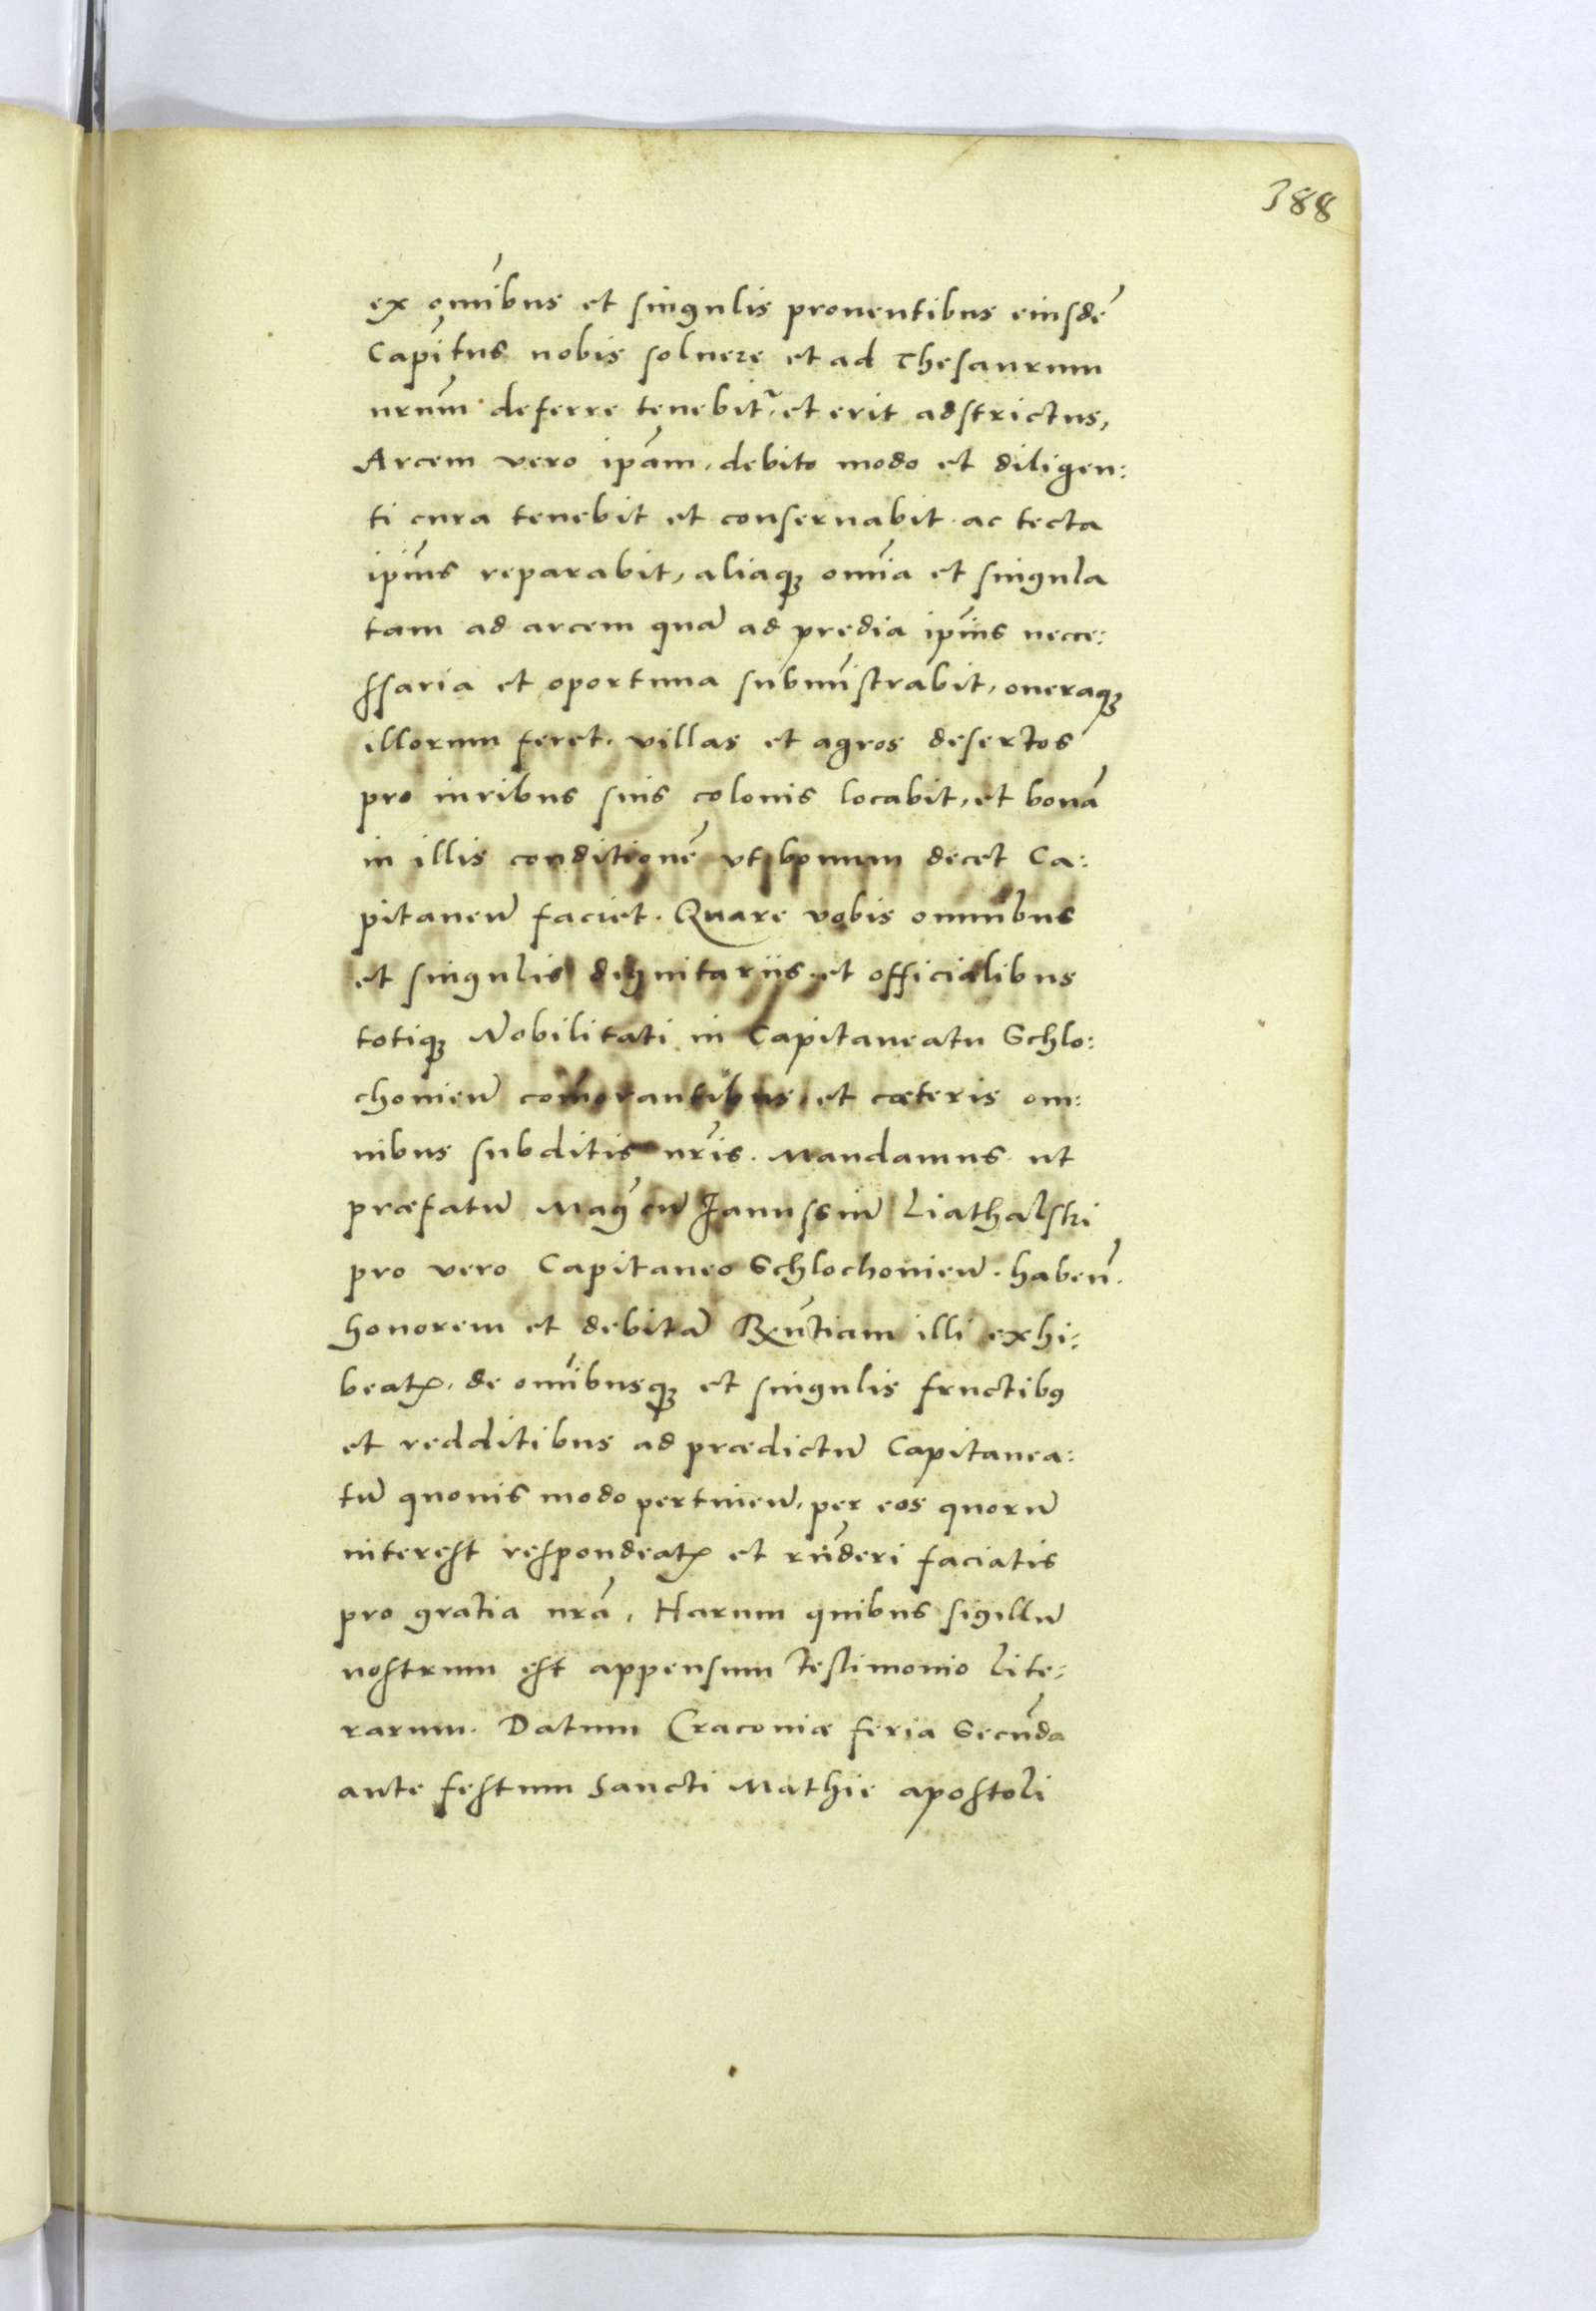 388
ex om̃ibus et singulis prouentibus eiusdẽ
Capĩtus nobis soluere et ad Thesaurum
nrũm deferre tenebit᷑, et erit adstrictus,
Arcem vero ipãm, debito modo et diligen:
ti cura tenebit et conseruabit ac tecta
ipĩus reparabit, aliaqꝫ om̃ia et singula
tam ad arcem quã ad predia ipĩus nece:
ssaria et oportuna submĩstrabit, oneraqꝫ
illorum feret, villas et agros desertos
pro iuribus suis colonis locabit, et bonã
in illis conditionẽ vt bonum decet Ca:
pitaneũ faciet. Quare vobis omnibus
et singulis dignitariis et officialibus
totiqꝫ Nobilitati in Capitaneatu Schlo:
chonieñ com̃orantibus, et cæteris om:
nibus subditis nr̃is. Mandamus ut
præfatũ Mag̃cũ Janussiũ Liathalski
pro vero Capitaneo Schlochonieñ. habeñ.
honorem et debitã Rxñtiam illi exhi:
beatꝭ, de om̃ibusqꝫ et singulis fructibꝰ
et redditibus ad prædictũ Capitanea:
tũ quouis modo pertineñ, per eos quorũ
interest respondeatꝭ et rñderi faciatis
pro gratia nrã, Harum quibus sigillũ
nostrum est appensum testimonio lite:
rarum. Datum Cracouiæ feria Secũda
ante festum Sancti Mathie apostoli